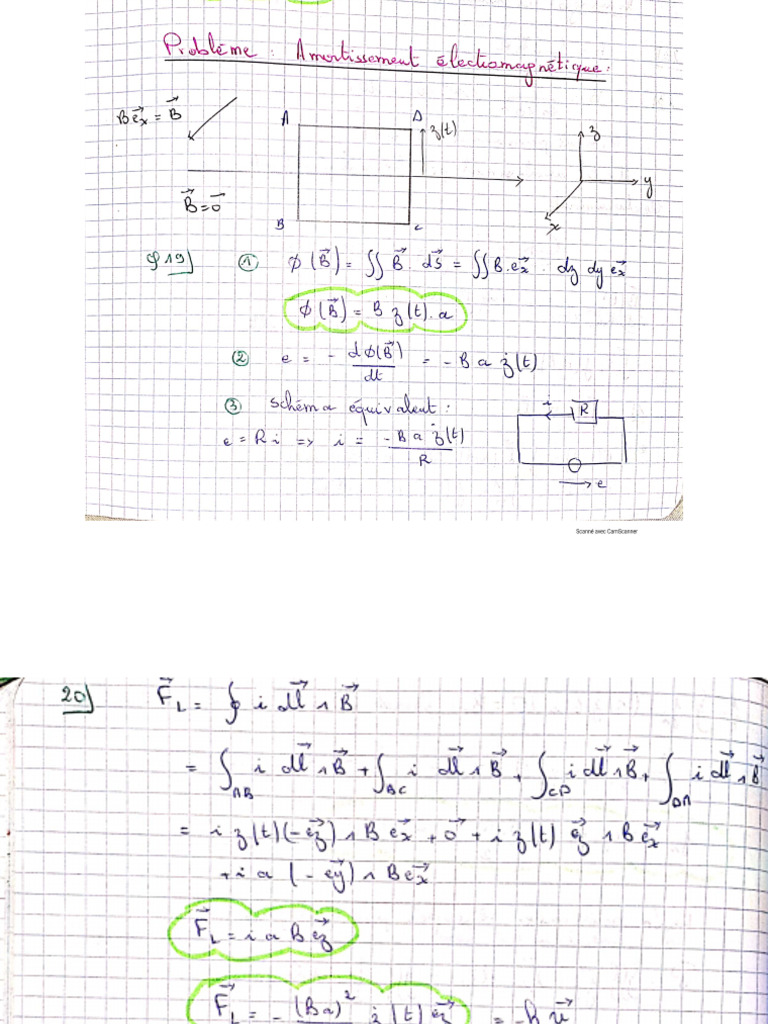 Problème : Amortissement électromagnétique :
B e⃗x = B⃗
A
D
z(t)
z
y
x
B⃗ = 0⃗
B
C
φ19) ① ϕ(B⃗) = ∬ B⃗ . dS⃗ = ∬ B . e⃗x . dz dy e⃗x
ϕ(B⃗) = B z(t) . a
② e = - dϕ(B⃗)/dt = - B a ż(t)
③ schéma équivalent :
e = R i => i = - B a ż(t) / R
i
R
e
Scanné avec CamScanner
20) F⃗L = ∮ i dl⃗ ∧ B⃗
= ∫AB i dl⃗ ∧ B⃗ + ∫BC i dl⃗ ∧ B⃗ + ∫CD i dl⃗ ∧ B⃗ + ∫DA i dl⃗ ∧ B⃗
= i z(t) (-e⃗z) ∧ B e⃗x + 0⃗ + i z(t) e⃗z ∧ B e⃗x
+ i a (- e⃗y) ∧ B e⃗x
F⃗L = i a B e⃗z
F⃗L = - (Ba)² ż(t) e⃗z = - h v⃗